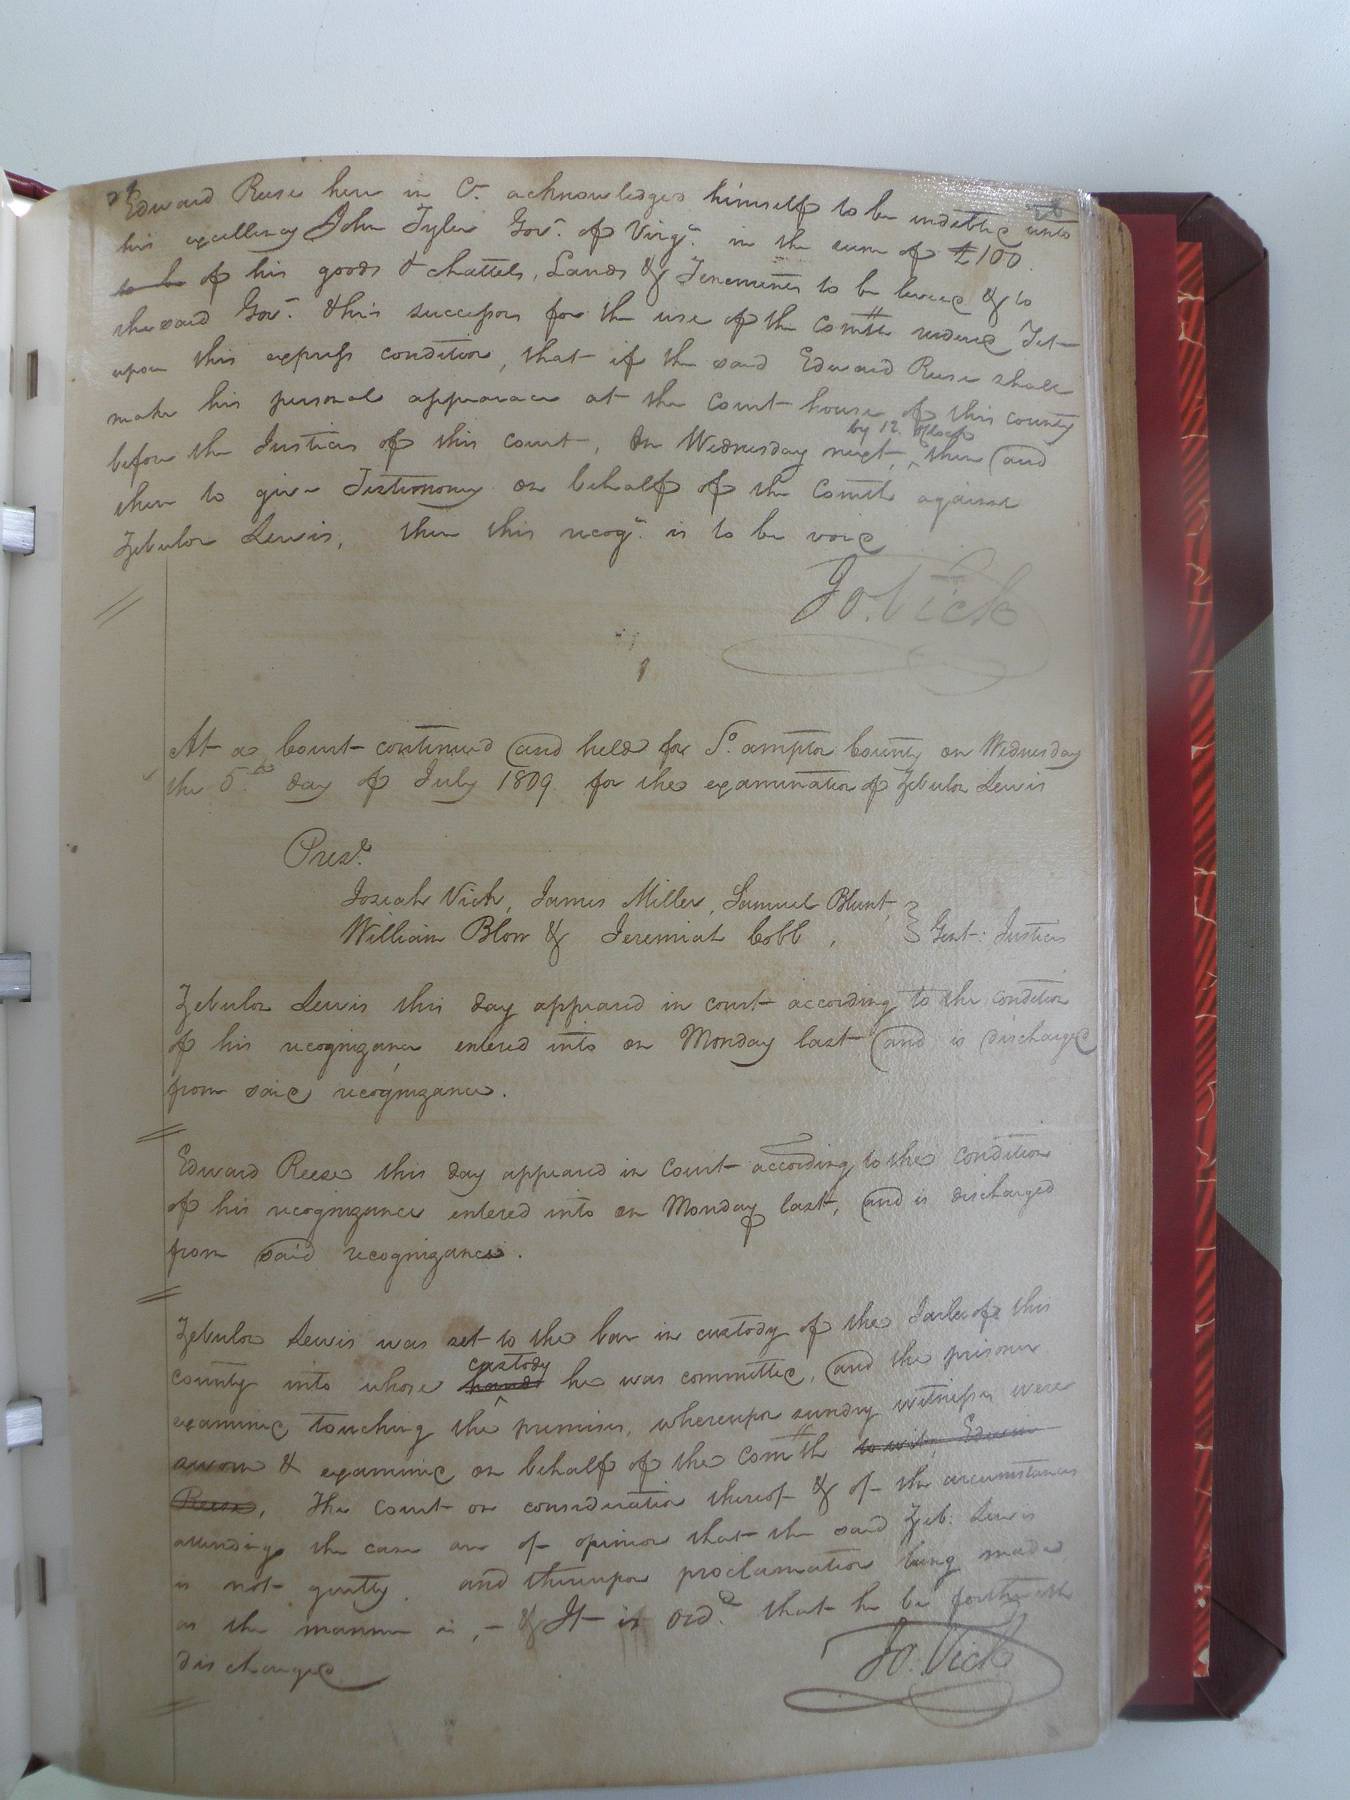 Edward Reese here in Ct. acknowledges himself to be indebted unto
his excellency John Tyler Govr. of Virga. in the sum of £100.
to be of his goods & chattels, Lands & Tenements to be levied & to
the said Govr. & his successors for the use of the Comth rendered, Yet
upon this express condition, that if the said Edward Reese shall
make his personal appearance at the Court house of this county
before the Justices of this court, on Wednesday next, by 12 oClock then and
there to give Testimony on behalf of the Comth against
Zebulon Lewis, then this recogn. is to be void
Jo. Vick
At a Court continued and held for So. ampton County on Wednesday
the 5th day of July 1809 for the examination of Zebulon Lewis
Prest.
Josiah Vick, James Miller, Samuel Blunt,
William Blow & Jeremiah Cobb, } Gent: Justices
Zebulon Lewis this day appeared in court according to the condition
of his recognizance entered into on Monday last and is discharged
from said recognizance.
Edward Reese this day appeared in Court according to the condition
of his recognizance entered into on Monday last, and is discharged
from said recognizance.
Zebulon Lewis was set to the bar in custody of the Jailer of this
county into whose hands custody he was committed, and the prisoner
examined touching the premises, whereupon sundry witnesses were
sworn & examined on behalf of the Comth to wit, Edwin
Reese, The Court on consideration thereof & of the circumstances
attending the case are of opinion that the said Zeb: Lewis
is not guilty. and thereupon proclamation being made
as the manner is, - & It is ord.d that he be forthwith
discharged
Jo. Vick